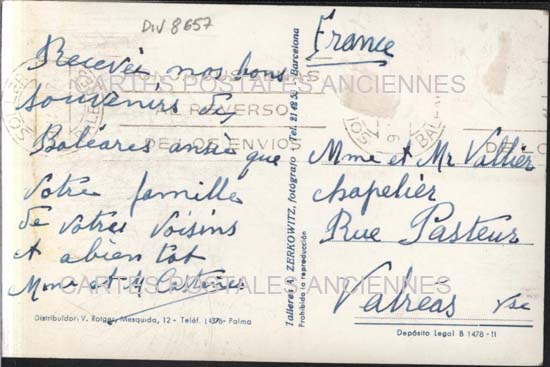 DIV 8657
Recevez nos bons
souvenirs des
Baléares ainsi que
votre famille
de votres voisins
et a bien tot
Mme et M
CARTES POSTALES ANCIENNES
AL REVERSO
DE LOS ENVIOS
CARTES POSTALES ANCIENNES
Distribuidor: V. Rotger, Mesquida, 12 - Teléf. 14376 - Palma
Talleres A. ZERKOWITZ, fotógrafo - Tel. 21 42 50 - Barcelona
Prohibida la reproducción
France
BALEARES
Mme et Mr Vallier
chapelier
Rue Pasteur
Valreas Vse
Depósito Legal B 1478 - II